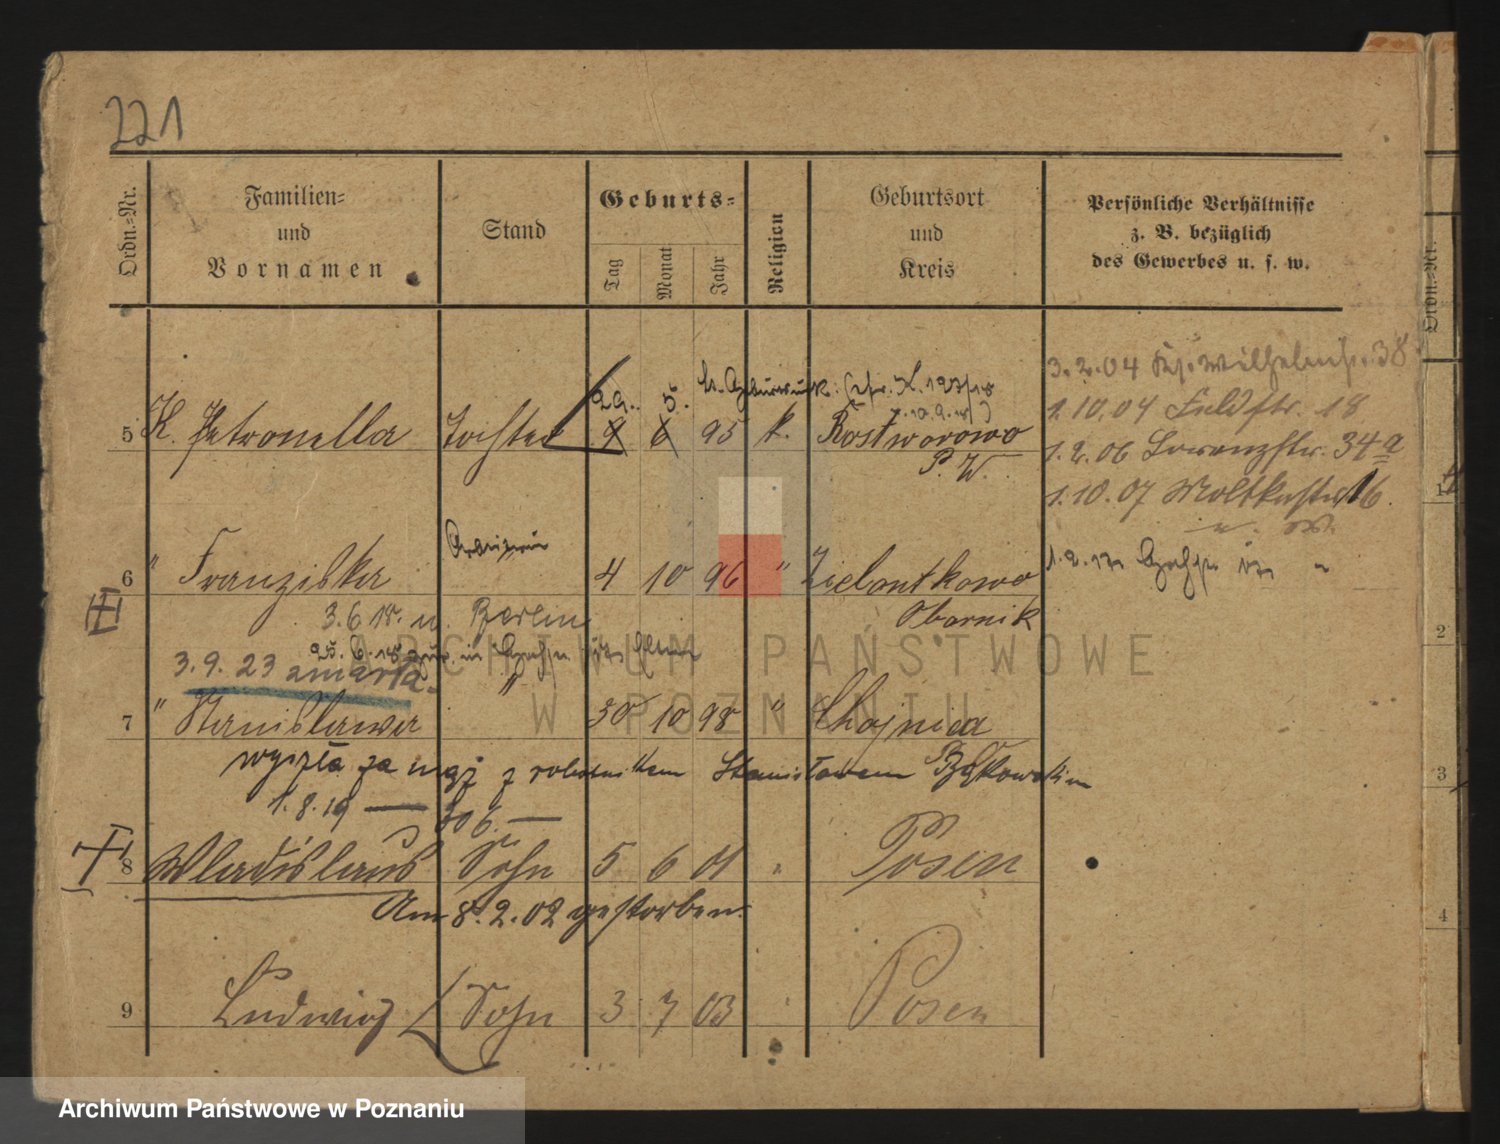 221
Ordn.-Nr.
Familien-
und
Vornamen
Stand
Geburts-
Tag
Monat
Jahr
Religion
Geburtsort
und
Kreis
Persönliche Verhältnisse
z. B. bezüglich
des Gewerbes u. s. w.
Ordn.-Nr.
3.2.04 38
29. 5.
5 K. Petronella Tochter 9 6 95 k. Rostworowo
P. W.
1.10.04 Feldstr. 18
1.2.06 Lorenzstr. 34a
1.10.07 Moltkestr. 16.
6 " Franziska 4 10 96 " Zielontkowo
Obornik
3.6.18. n. Berlin
3.9.23 zmarła
7 " Stanislawa " 30 10 98 " Chojnica
wyszła za mąż z robotnikem Stanisławem Bąkowskim
1.8.19
8 Wladislaus Sohn 5 6 01 " Posen
Am 8.2.02 gestorben.
9 Ludwig Sohn 3 7 03 " Posen
1
2
3
4
ARCHIWUM PAŃSTWOWE
W POZNANIU
Archiwum Państwowe w Poznaniu